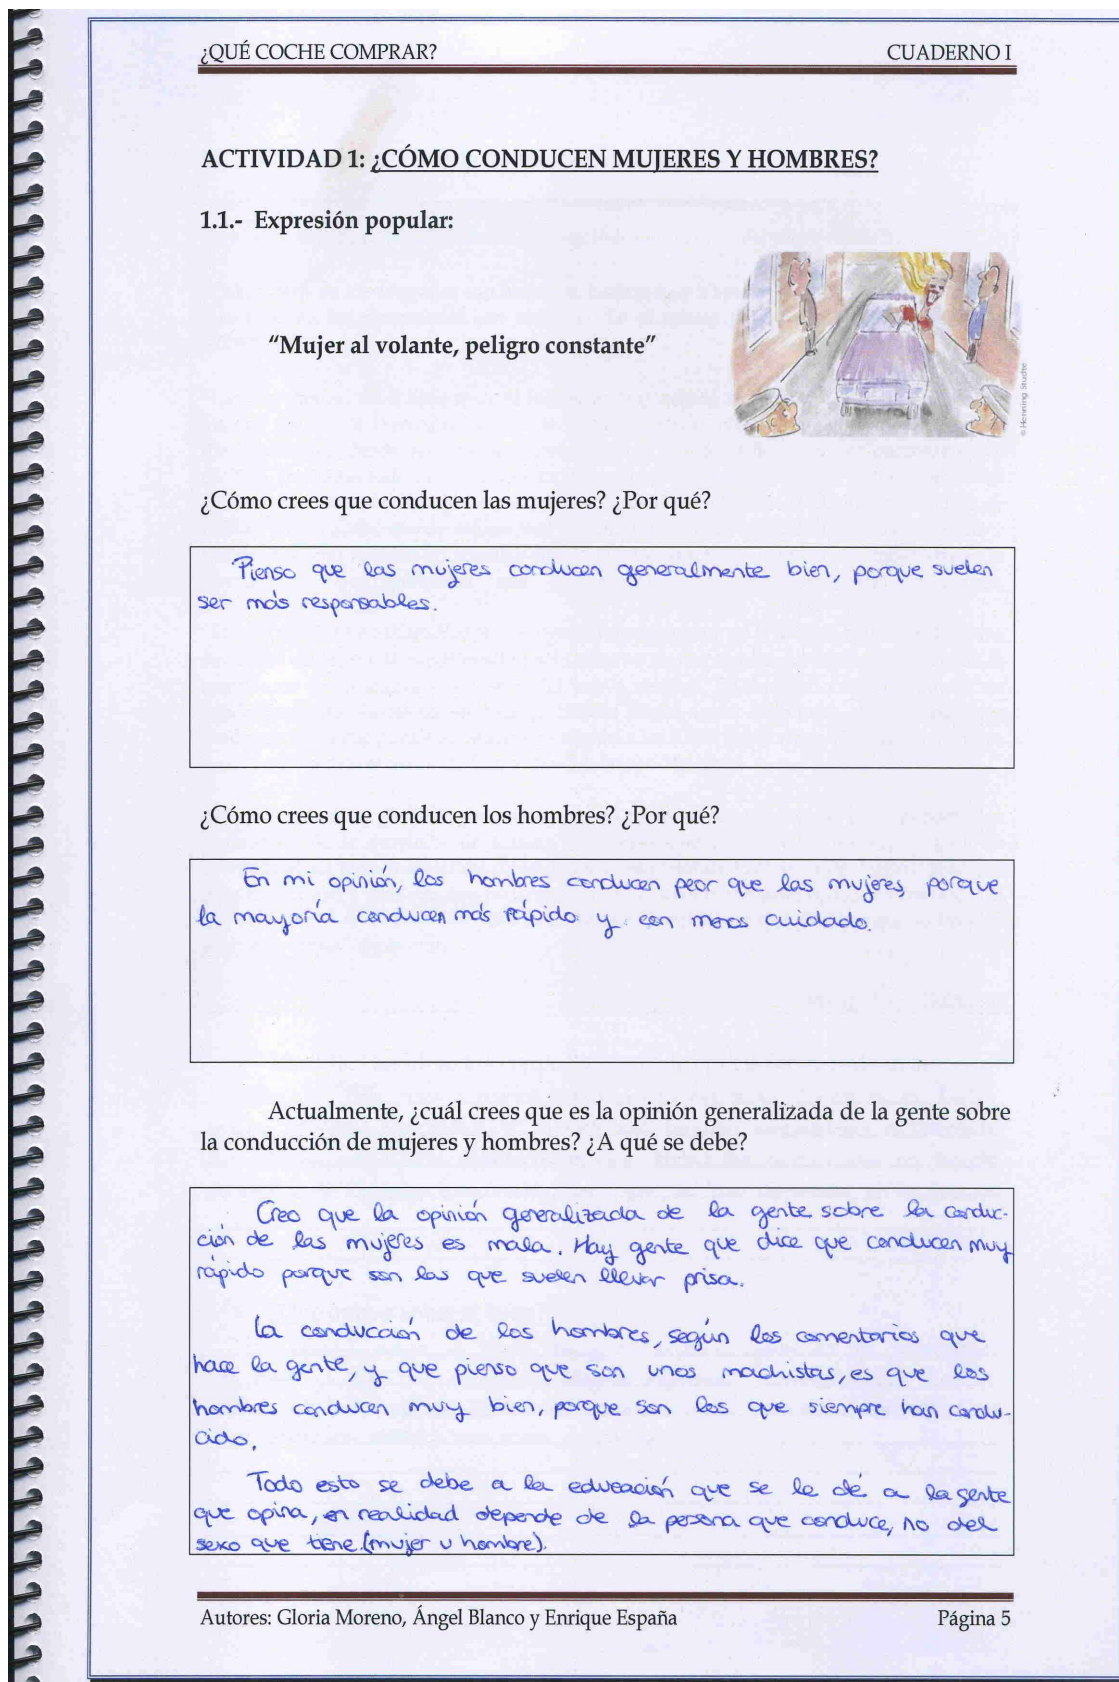 ¿QUÉ COCHE COMPRAR? CUADERNO I
ACTIVIDAD 1: ¿CÓMO CONDUCEN MUJERES Y HOMBRES?
1.1.- Expresión popular:
“Mujer al volante, peligro constante”
© Henning Studte
¿Cómo crees que conducen las mujeres? ¿Por qué?
Pienso que las mujeres conducen generalmente bien, porque suelen
ser más responsables.
¿Cómo crees que conducen los hombres? ¿Por qué?
En mi opinión, los hombres conducen peor que las mujeres, porque
la mayoría conducen más rápido y con menos cuidado.
Actualmente, ¿cuál crees que es la opinión generalizada de la gente sobre
la conducción de mujeres y hombres? ¿A qué se debe?
Creo que la opinión generalizada de la gente sobre la conduc-
ción de las mujeres es mala. Hay gente que dice que conducen muy
rápido porque son las que suelen llevar prisa.
La conducción de los hombres, según los comentarios que
hace la gente, y que pienso que son unos machistas, es que los
hombres conducen muy bien, porque son los que siempre han condu-
cido.
Todo esto se debe a la educación que se le dé a la gente
que opina, en realidad depende de la persona que conduce, no del
sexo que tiene. (mujer u hombre).
Autores: Gloria Moreno, Ángel Blanco y Enrique España Página 5